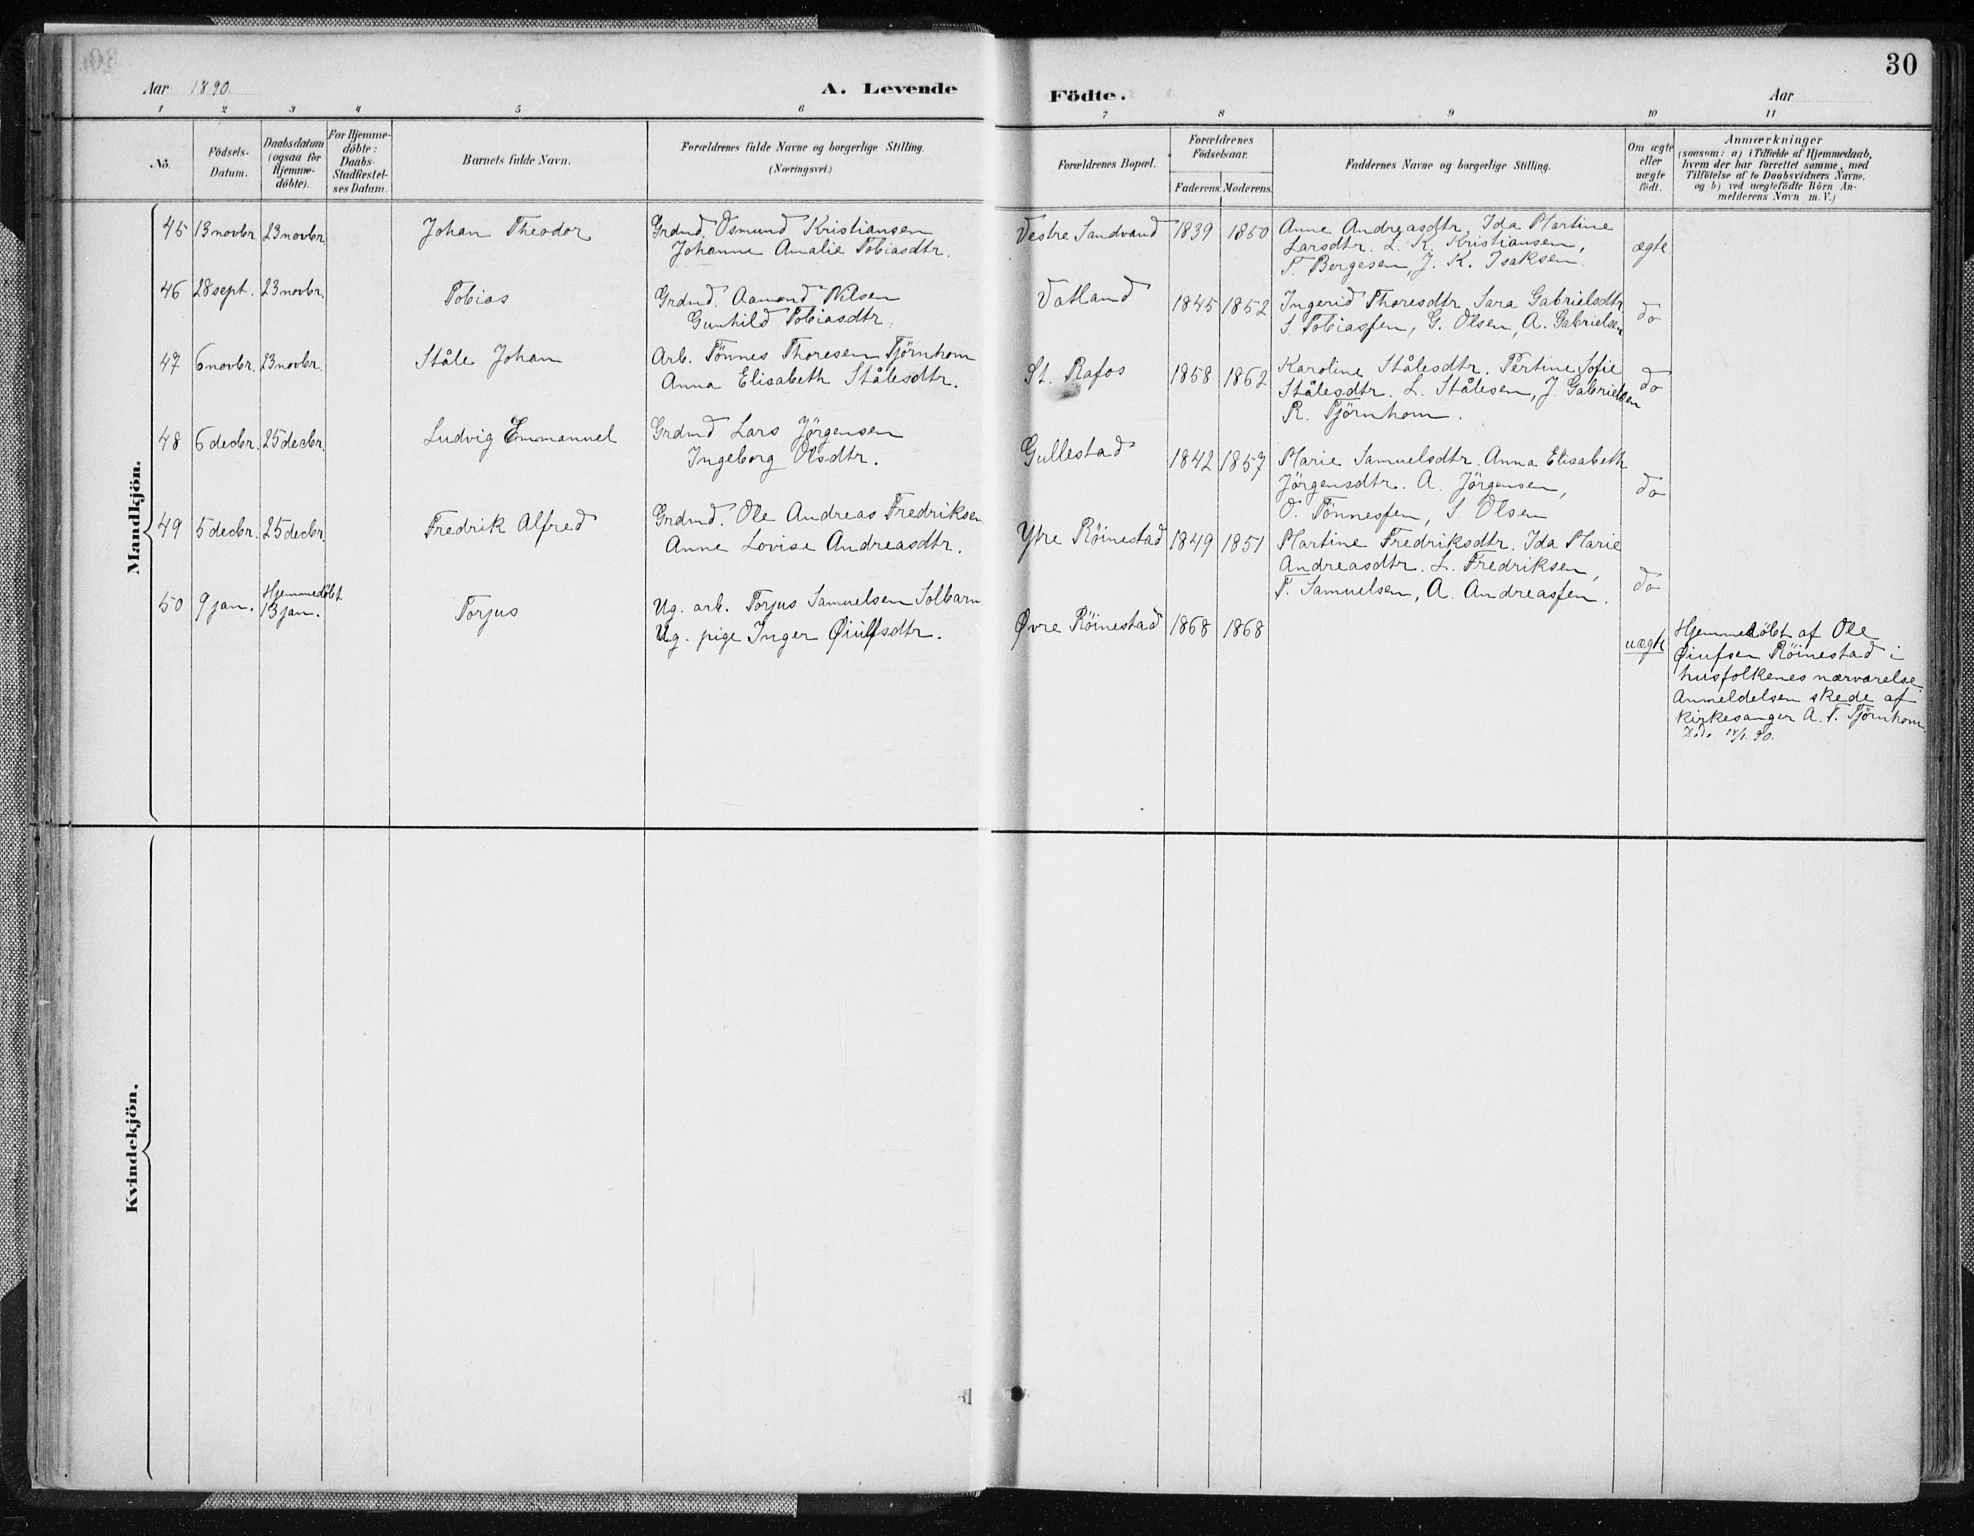 30
Aar 1890.
A. Levende Födte.
Aar
1 2 3 4 5 6 7 8 9 10 11
No.
Födsels-Datum.
Daabsdatum (ogsaa for Hjemme-döbte).
For Hjemme-döbte: Daabs-Stadfæstel-ses Datum.
Barnets fulde Navn.
Forældrenes fulde Navne og borgerlige Stilling. (Næringsvei.)
Forældrenes Bopæl.
Forældrenes Födselsaar.
Faderens. Moderens.
Faddernes Navne og borgerlige Stilling.
Om ægte eller uægte födt.
Anmærkninger
(saasom: a) i Tilfælde af Hjemmedaab,
hvem der har forrettet samme, med
Tilföielse af to Daabsvidners Navne,
og b) ved uægtefödte Börn An-
melderens Navn m. V.)
Mandkjön.
45 13 novbr. 23 novbr. Johan Theodor Grdmd. Osmund Kristiansen Vestre Sandvand 1839 1850 Anne Andreasdtr. Ida Martine
Johanne Amalie Tobiasdtr. Larsdtr. L. K. Kristiansen, ægte.
T. Bergesen, J. K. Isaksen.
46 28 sept. 23 novbr. Tobias Grdmd. Aamond Nilsen Vatland 1845 1852 Ingerid Thoresdtr. Sara Gabrielsdtr.
Gunhild Tobiasdtr. S. Tobiassen, G. Olsen, A. Gabrielsen do
47 6 novbr. 23 novbr. Ståle Johan Arb. Tönnes Thoresen Tjörnhom St. Rafos 1858 1862 Karoline Stålesdtr. Pertine Sofie
Anna Elisabeth Stålesdtr. Stålesdtr. L. Stålesen, J. Gabrielsen do
R. Tjörnhom.
48 6 decbr. 25 decbr. Ludvig Emmanuel Grdmd Lars Jörgensen Gullestad 1842 1857 Marie Samuelsdtr. Anna Elisabeth
Ingeborg Olsdtr. Jörgensdtr. A. Jörgensen, do
O. Tönnessen, S. Olsen
49 5 decbr. 25 decbr. Fredrik Alfred Grdmd. Ole Andreas Fredriksen Ytre Röinestad 1849 1851 Martine Fredriksdtr. Ida Marie
Anne Lovise Andreasdtr. Andreasdtr. L. Fredriksen,
T. Samuelsen, A. Andreassen. do
50 9 jan. Hjemmedöbt 13 jan. Torjus Ug. arb. Torjus Samuelsen Ug. pige Inger Øvre Röinestad 1868 1868 uægte
Hjemmedöbt af Ole
Röinestad i
husfolkenes nærværelse.
Anmeldelsen skede af
kirkesanger A. T. Tjörnhom.
14/1. 90.
Kvindekjön.